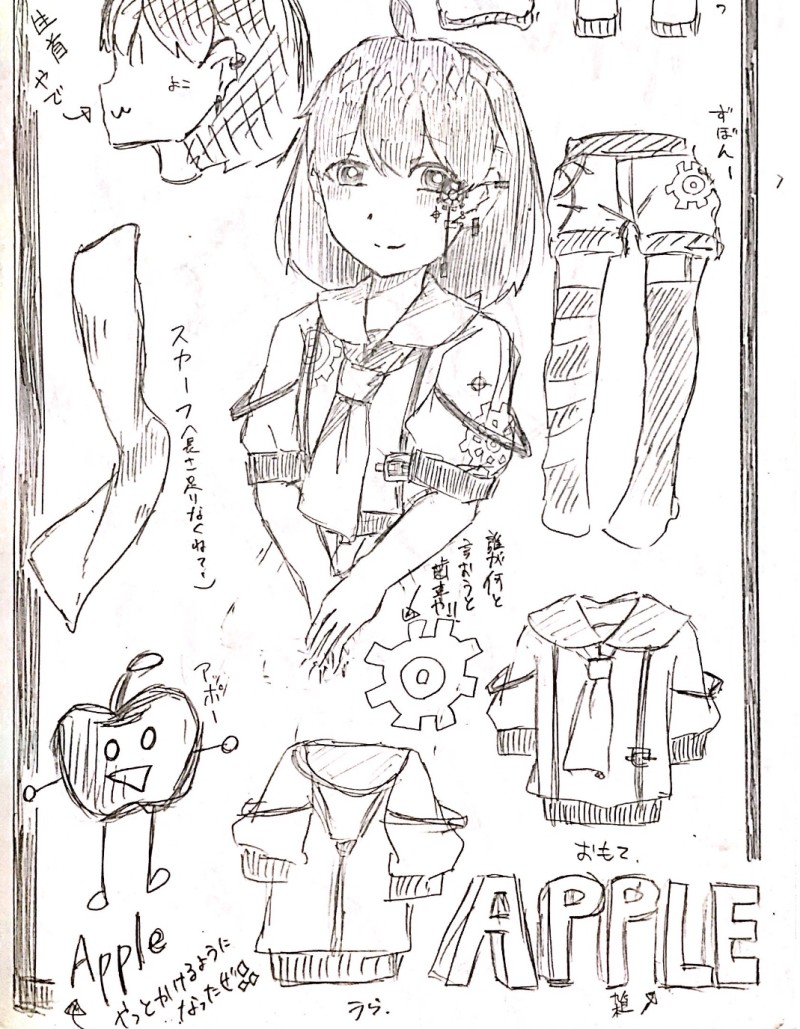 生首
やで
よこ
ずぼんー
スカーフ(長さ足りなくね?。)
誰が何と
言おうと
歯車や!!
アポー
おもて.
APPLE
雑
Apple
やっとかけるように
なったぜ
うら.